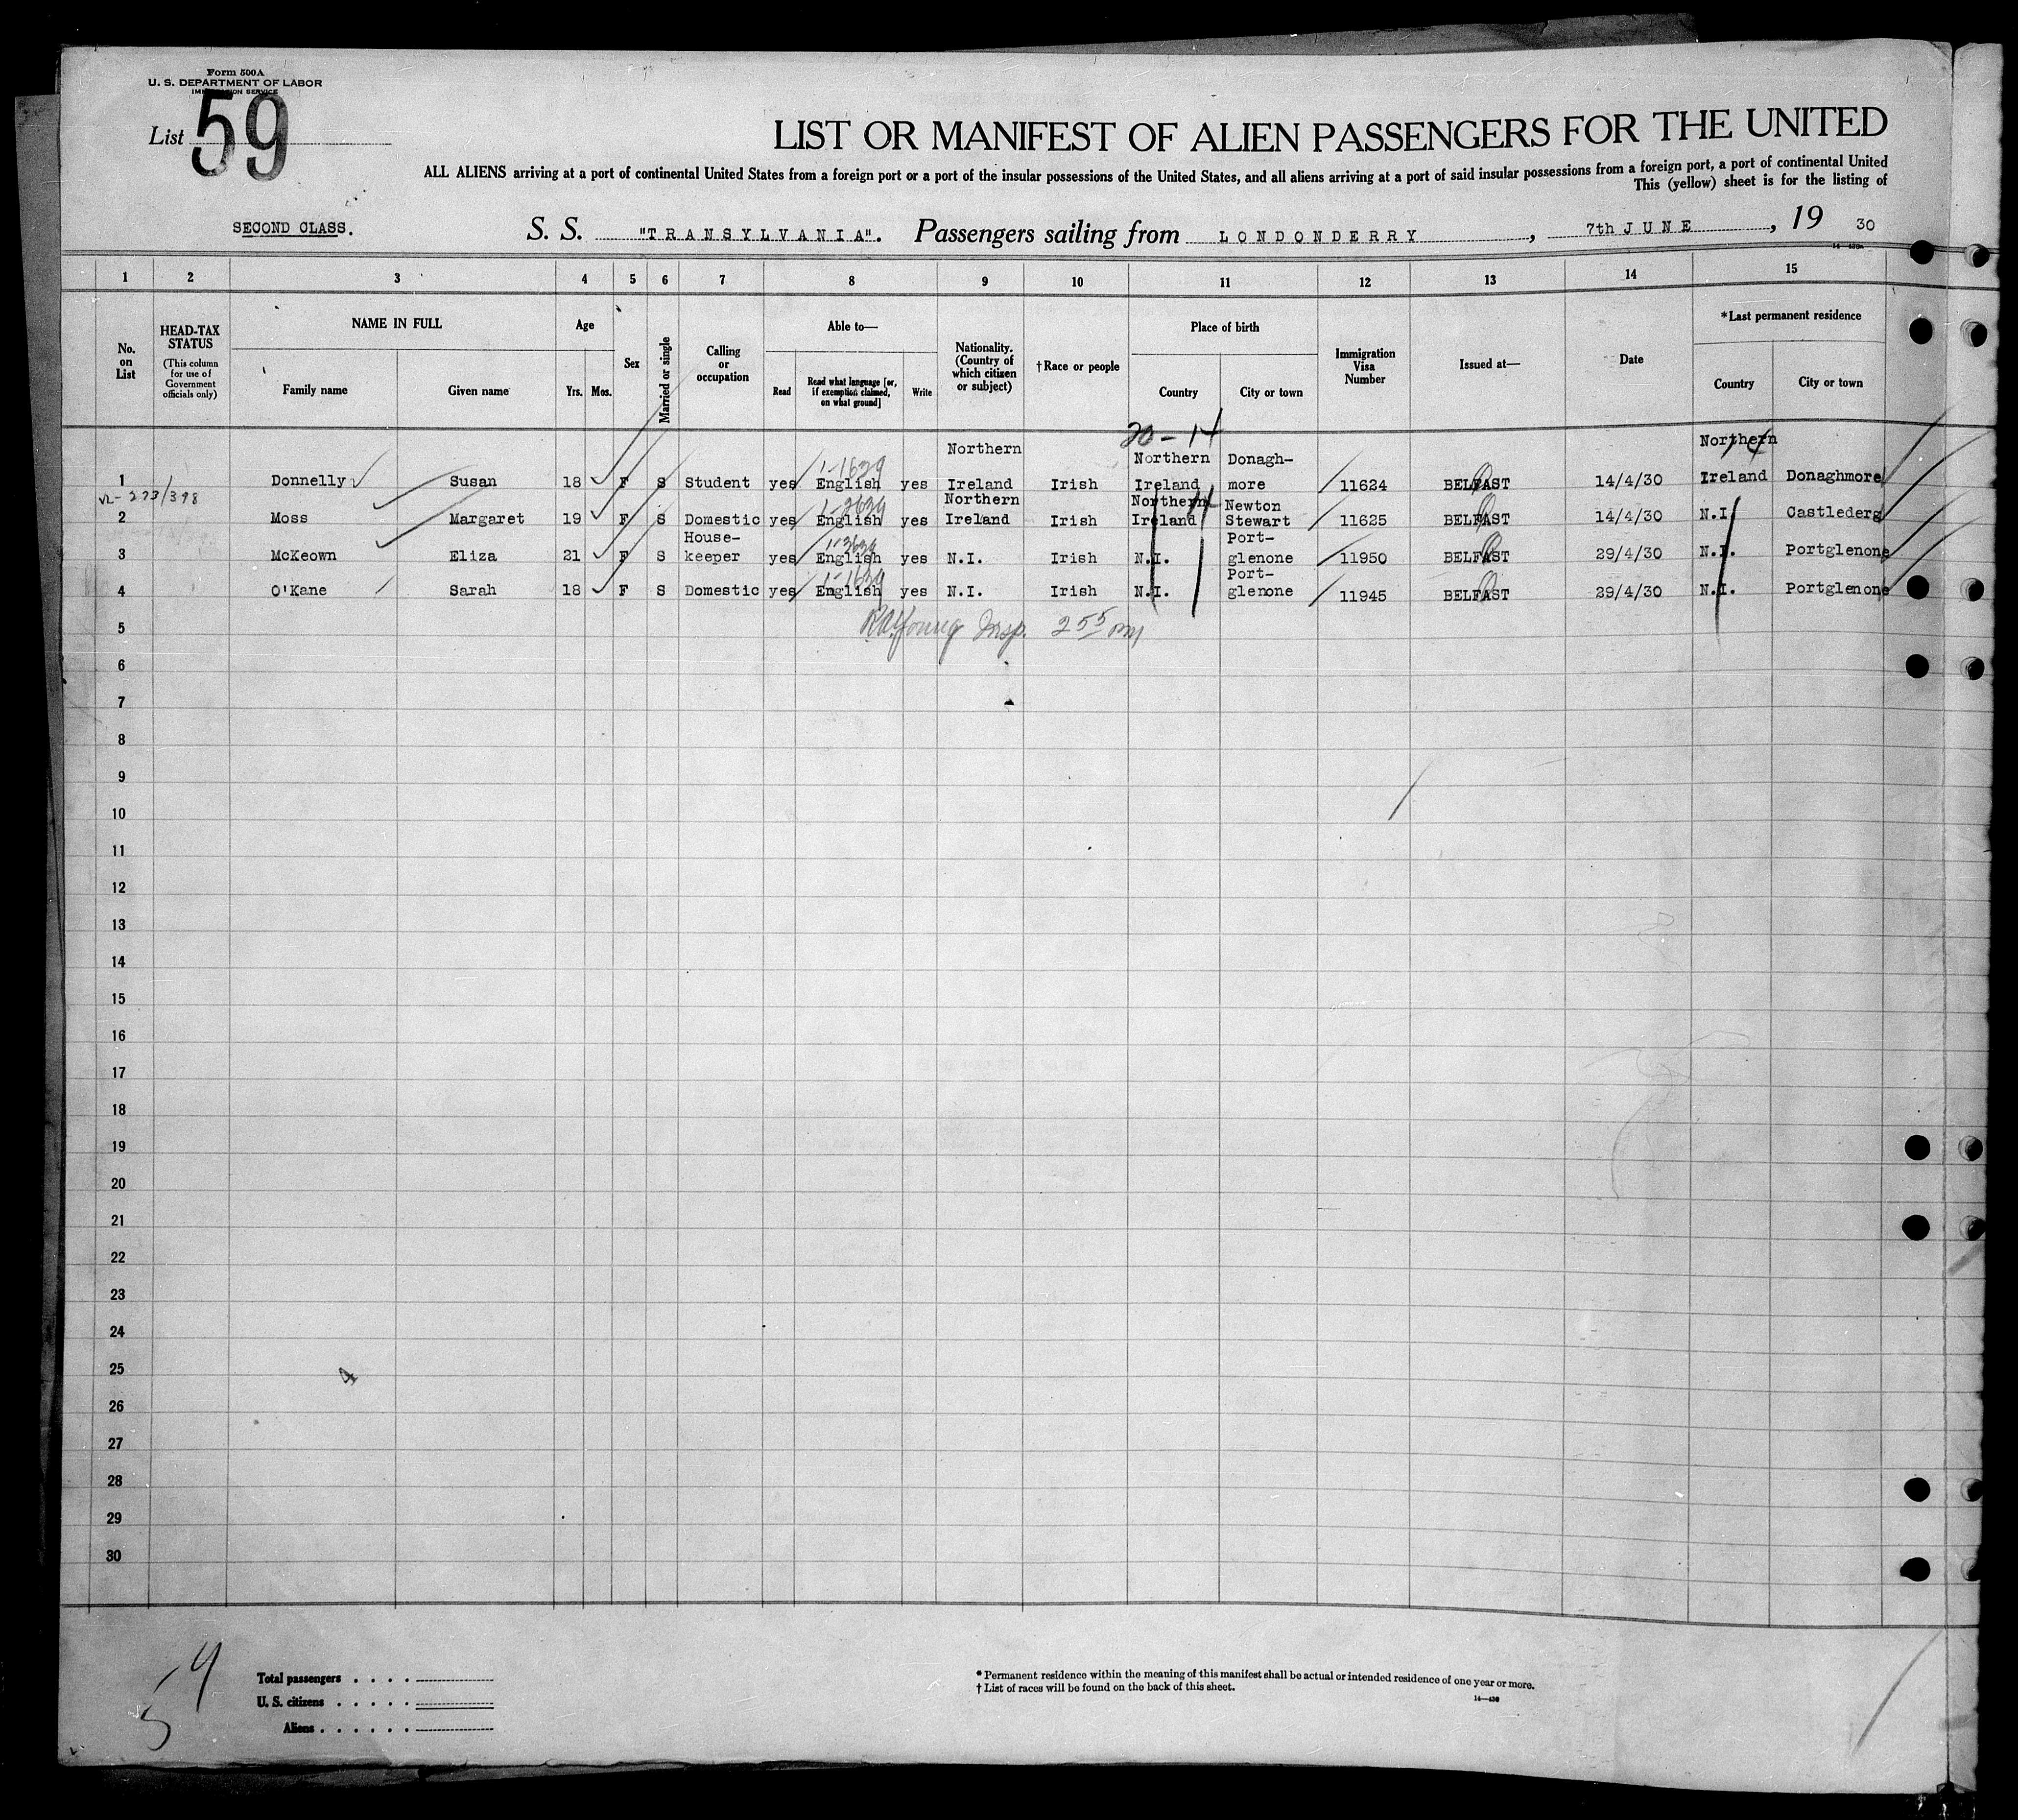 Form 500A
U. S. DEPARTMENT OF LABOR
IMMIGRATION SERVICE
List 59
LIST OR MANIFEST OF ALIEN PASSENGERS FOR THE UNITED
ALL ALIENS arriving at a port of continental United States from a foreign port or a port of the insular possessions of the United States, and all aliens arriving at a port of said insular possessions from a foreign port, a port of continental United
This (yellow) sheet is for the listing of
SECOND CLASS. S. S. "TRANSYLVANIA". Passengers sailing from LONDONDERRY, 7th JUNE, 19 30
1 2 3 4 5 6 7 8 9 10 11 12 13 14 15
No. on List
HEAD-TAX STATUS
(This column for use of Government officials only)
NAME IN FULL
Family name Given name
Age
Yrs. Mos.
Sex
Married or single
Calling or occupation
Able to—
Read
Read what language [or, if exemption claimed, on what ground]
Write
Nationality. (Country of which citizen or subject)
†Race or people
Place of birth
Country City or town
Immigration Visa Number
Issued at—
Date
*Last permanent residence
Country City or town
20-14
14
1-1639
1 Donnelly Susan 18 F S Student yes English yes Northern Ireland Irish Northern Ireland Donagh-more 11624 BELFAST 14/4/30 Northern Ireland Donaghmore
1-2639
2 Moss Margaret 19 F S Domestic yes English yes Northern Ireland Irish Northern Ireland Newton Stewart 11625 BELFAST 14/4/30 N.I. Castlederg
3 McKeown Eliza 21 F S House-keeper yes English yes N.I. Irish N.I. Port-glenone 11950 BELFAST 29/4/30 N.I. Portglenone
1-1639
4 O'Kane Sarah 18 F S Domestic yes English yes N.I. Irish N.I. Port-glenone 11945 BELFAST 29/4/30 N.I. Portglenone
5 Young Insp. 2 55 pm
6
7
8
9
10
11
12
13
14
15
16
17
18
19
20
21
22
23
24
25 4
26
27
28
29
30
Total passengers . . . .
U. S. citizens . . . . .
Aliens . . . . . .
* Permanent residence within the meaning of this manifest shall be actual or intended residence of one year or more.
† List of races will be found on the back of this sheet.